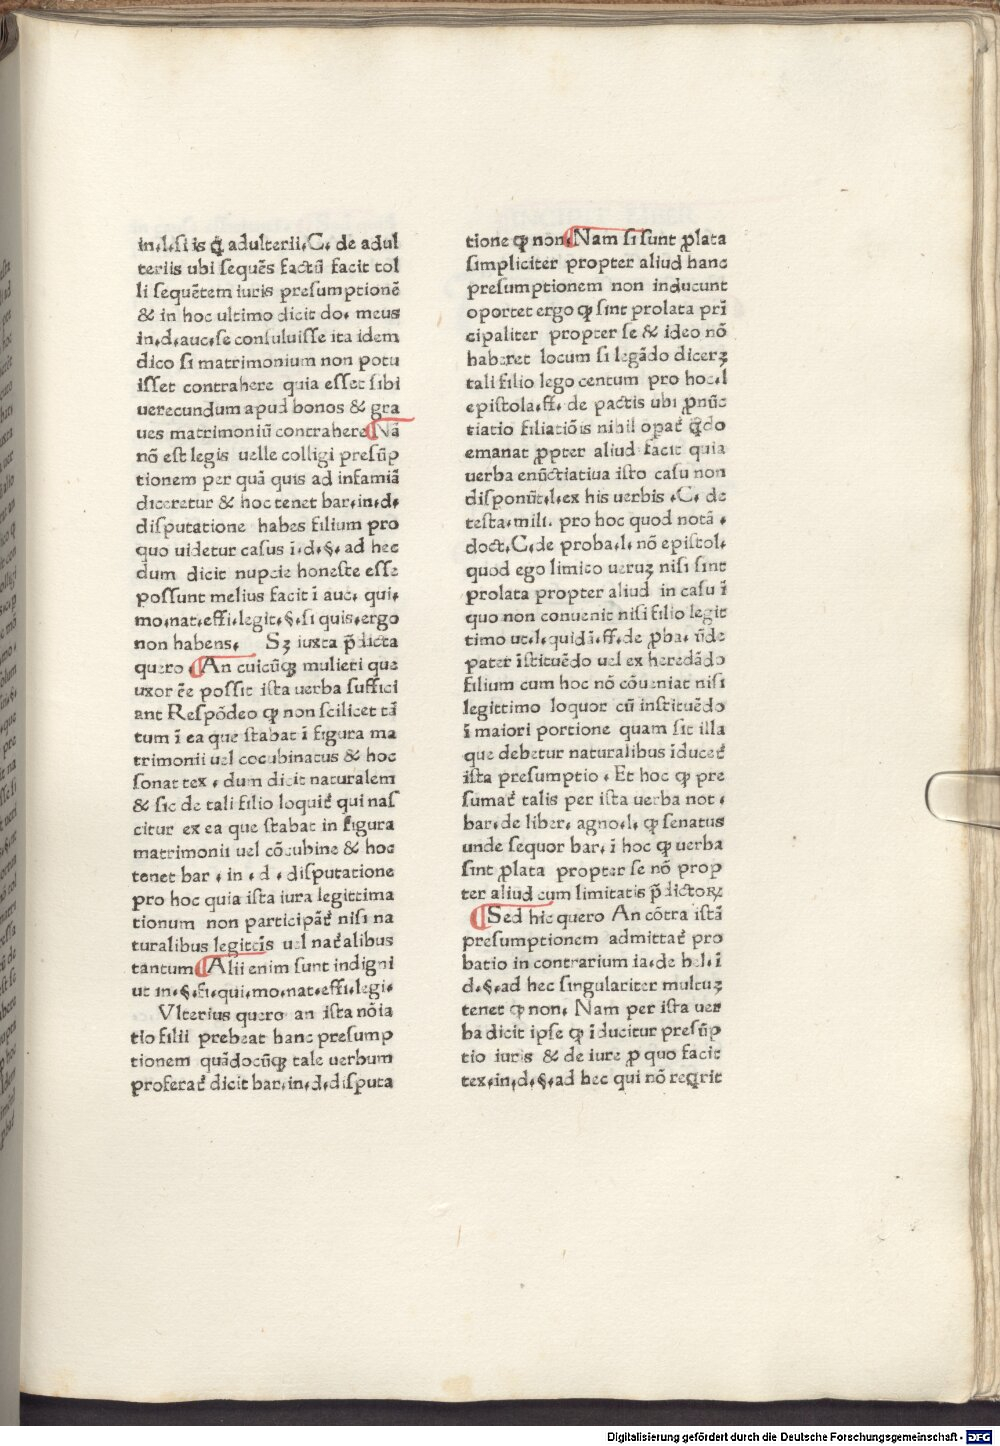 in.l.si is ꝗ adulterii.C. de adul
teriis ubi sequēs factū facit tol
li sequētem iuris presumptionē
& in hoc ultimo dicit do. meus
in.d.auc.se consuluisse ita idem
dico si matrimonium non potu
isset contrahere quia esset sibi
uerecundum apud bonos & gra
ues matrimoniū contrahere ¶ Nā
nō est legis uelle colligi presūp
tionem per quā quis ad infamiā
diceretur & hoc tenet bar.in.d.
disputatione habes filium pro
quo uidetur casus ī.d.§.ad hec
dum dicit nupcie honeste esse
possunt melius facit ī auc. qui.
mo.nat.effi.legit.§.si quis.ergo
non habens. Sꝫ iuxta p̄dicta
quero. ¶ An cuicūqꝫ mulieri que
uxor ēe possit ista uerba suffici
ant Respōdeo ꝙ non scilicet tā
tum ī ea que stabat ī figura ma
trimonii uel cocubinatus & hoc
sonat tex. dum dicit naturalem
& sic de tali filio loquit̄ qui nas
citur ex ea que stabat in figura
matrimonii uel cōcubine & hoc
tenet bar. in. d. disputatione
pro hoc quia ista iura legittima
tionum non participāt̄ nisi na
turalibus legittīs uel nat̄alibus
tantum ¶ Alii enim sunt indigni
ut in.§.fi.qui.mo.nat.effi.legi.
Vlterius quero an ista nōia
tio filii prebeat hanc presump
tionem quādocūqꝫ tale uerbum
proferat̄ dicit bar.in.d.disputa
tione ꝙ non. ¶ Nam si sunt ꝓlata
simpliciter propter aliud hanc
presumptionem non inducunt
oportet ergo ꝙ sint prolata prī
cipaliter propter se & ideo nō
haberet locum si legādo dicerꝫ
tali filio lego centum pro hoc.l
epistola.ff. de pactis ubi ꝓnūc
tiatio filiatiōis nihil opat̄ q̄do
emanat ꝓpter aliud facit quia
uerba enūctiatiua isto casu non
disponūt.l.ex his uerbis.C. de
testa.mili. pro hoc quod notā.
doct.C.de proba.l. nō epistol.
quod ego limico ueruꝫ nisi sint
prolata propter aliud in casu ī
quo non conuenit nisi filio legit
timo ut.l.quidā.ff.de ꝓba. ūde
pater īstituēdo uel ex heredādo
filium cum hoc nō cōueniat nisi
legittimo loquor cū instituēdo
ī maiori portione quam sit illa
que debetur naturalibus īducet̄
ista presumptio. Et hoc ꝙ pre
sumat̄ talis per ista uerba not.
bar.de liber. agno.l. ꝙ senatus
unde sequor bar. ī hoc ꝙ uerba
sint ꝓlata propter se nō prop
ter aliud cum limitatis p̄dictoꝝ
¶ Sed hic quero An cōtra istā
presumptionem admittat̄ pro
batio in contrarium ia.de bel.ī
d.§.ad hec singulariter multuꝫ
tenet ꝙ non. Nam per ista uer
ba dicit ipse ꝙ īducitur presūp
tio iuris & de iure ꝓ quo facit
tex.in.d.§.ad hec qui nō reqrit
Digitalisierung gefördert durch die Deutsche Forschungsgemeinschaft - DFG